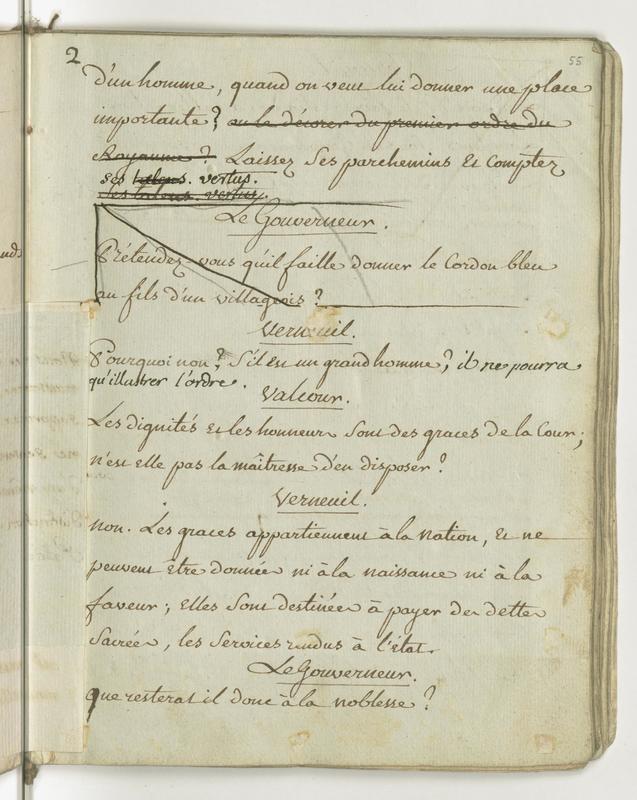 2
55
d'un homme, quand on veut lui donner une place
importante? ou le décorer du premier ordre du
Royaume? Laissez ses parchemins Et Comptez
ses talens. vertus.
ses talens. vertus.
Le Gouverneur.
Prétendez-vous qu'il faille donner le Cordon bleu
au fils d'un villageois?
Verneuil.
Pourquoi non? S'il Est un grand homme; il ne pourra
qu'illustrer l'ordre.
Valcour.
Les dignités Et les honneurs sont des graces de la Cour;
n'est elle pas la maîtresse d'en disposer?
Verneuil.
non. Les graces appartiennent à la nation, Et ne
peuvent être données ni à la naissance ni à la
faveur; Elles sont destinées à payer des dettes
Sacrées, les Services rendus à l'état.
Le Gouverneur.
que resterat il donc à la noblesse?